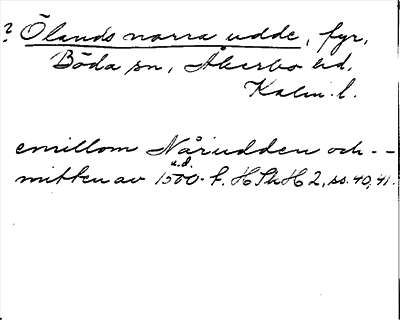 ? Ölands norra udde, fyr,
Böda sn, Åkerbo hd,
Kalm. l.
emillom Nårudden och --
u.d.
mitten av 1500-t. HSkH 2, ss. 40, 41.